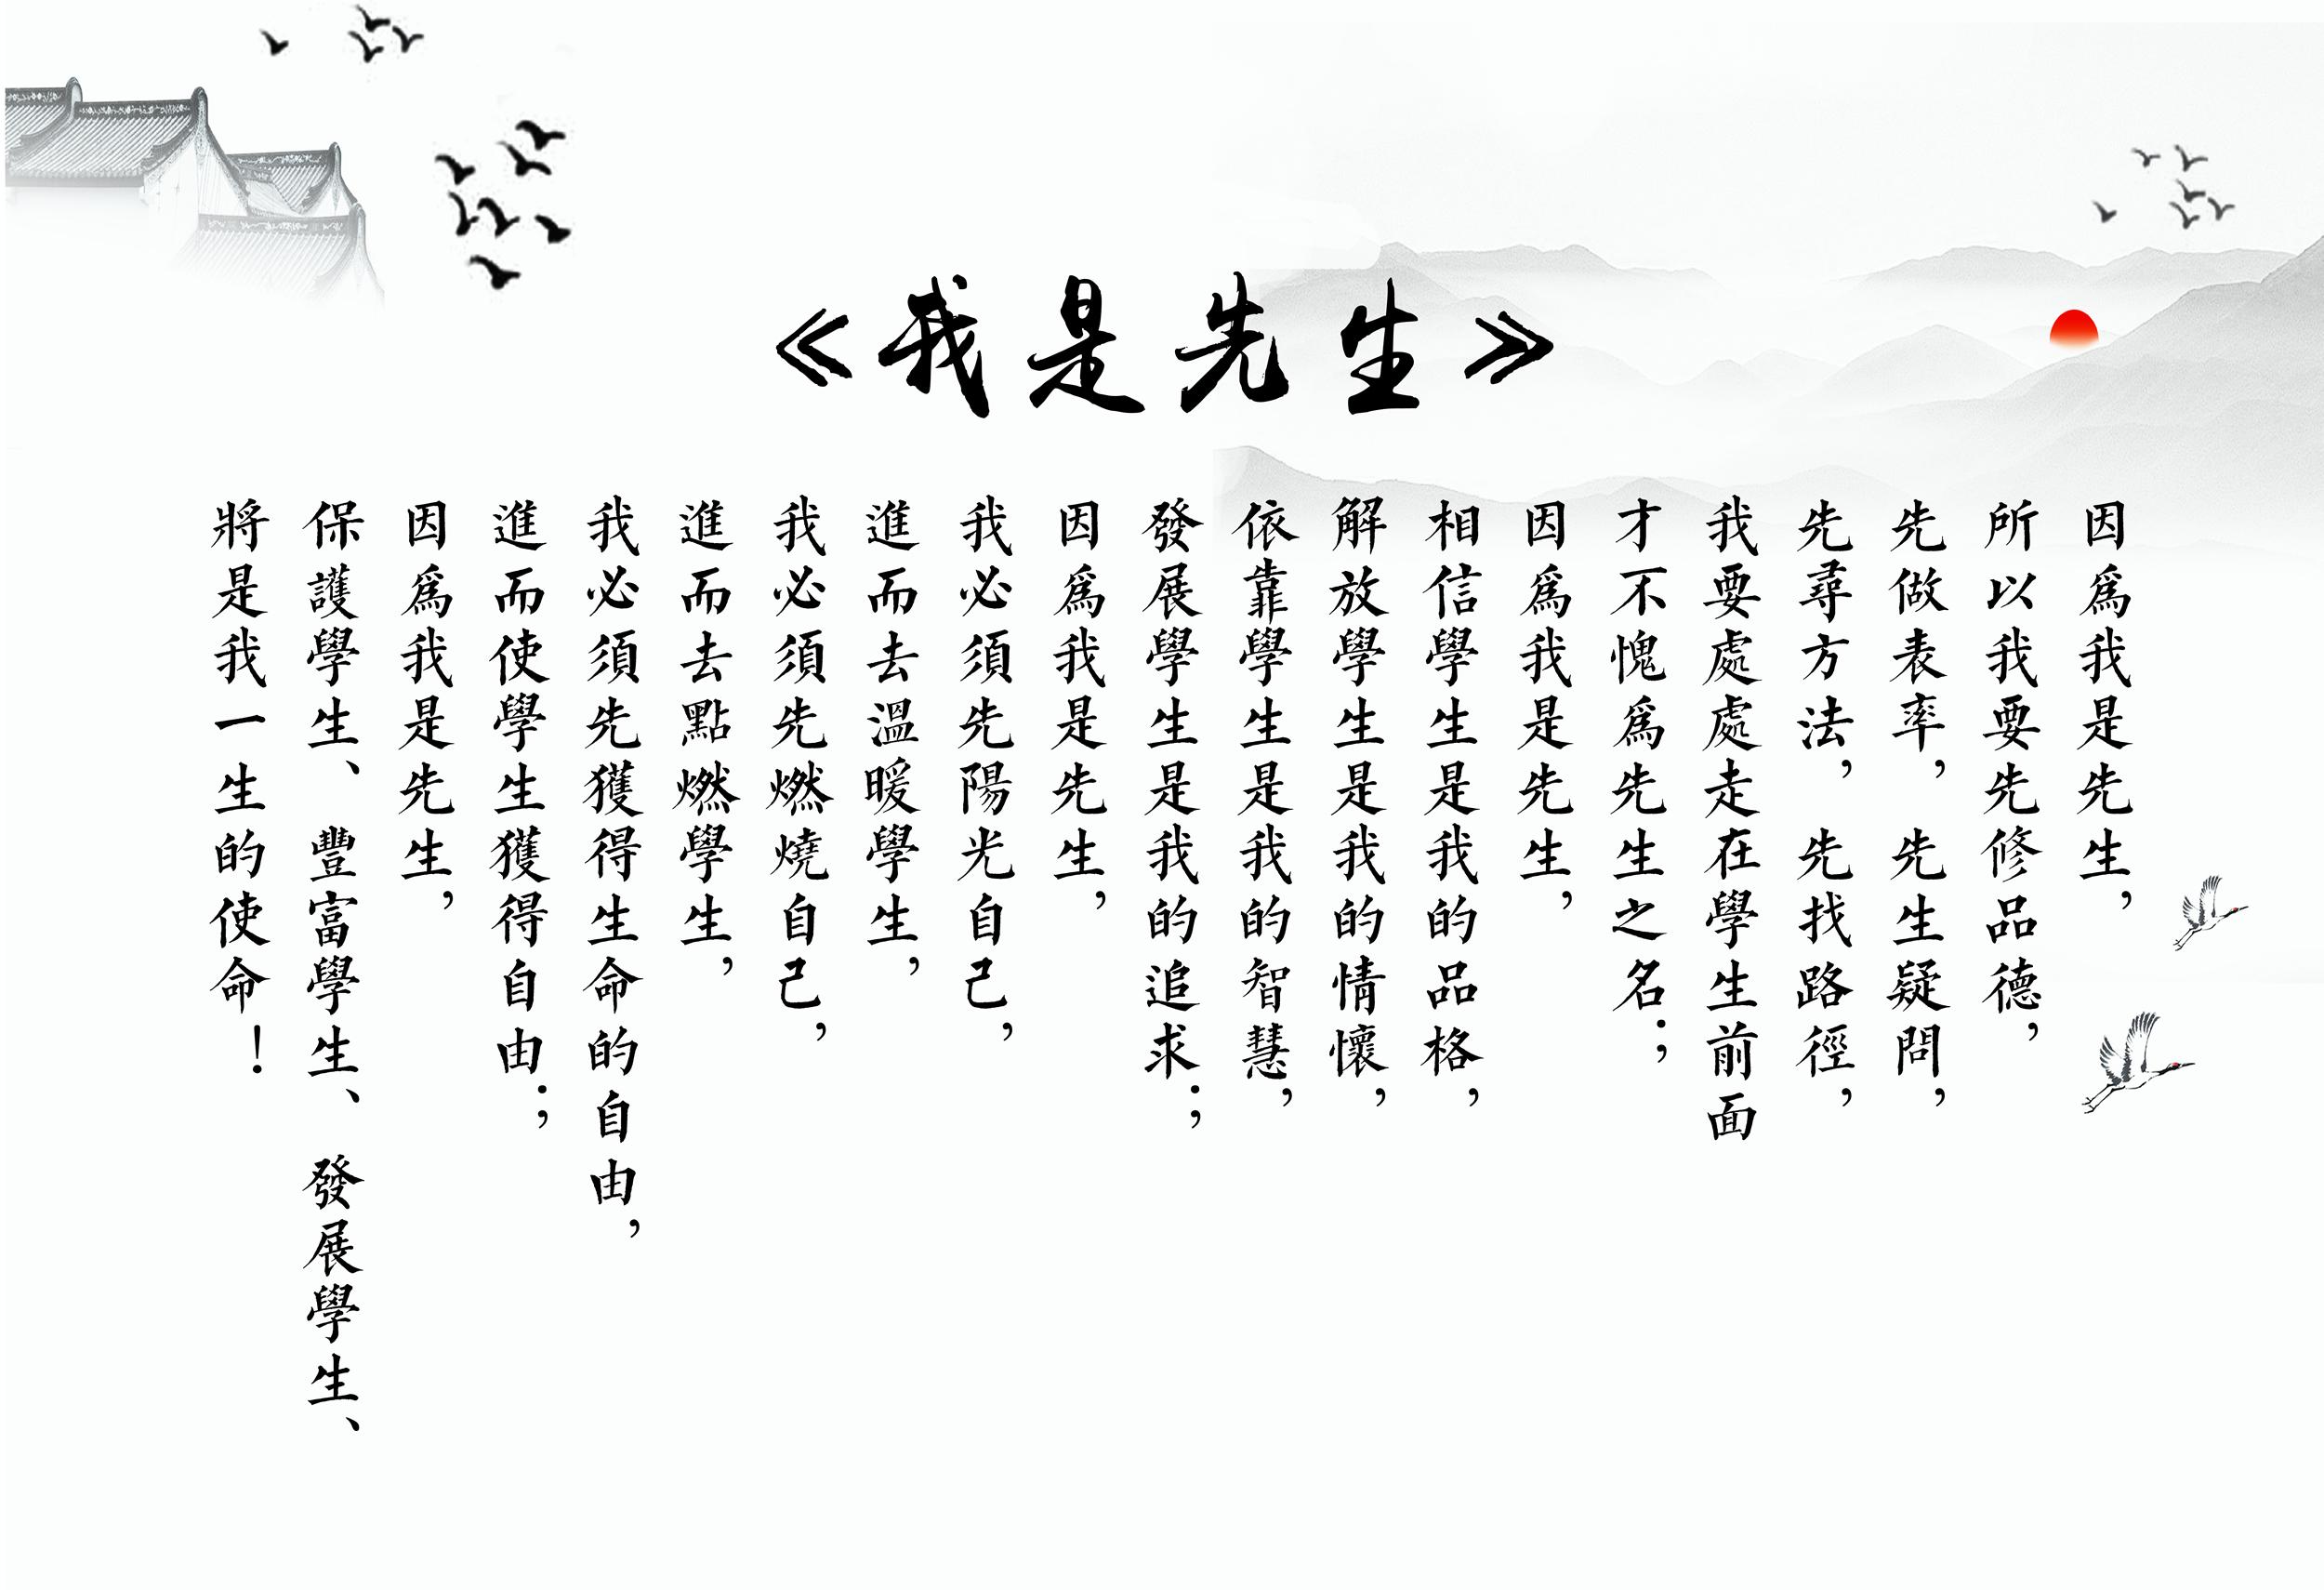 《我是先生》
因爲我是先生，
所以我要先修品德，
先做表率，先生疑問，
先尋方法，先找路徑，
我要處處走在學生前面
才不愧爲先生之名；
因爲我是先生，
相信學生是我的品格，
解放學生是我的情懷，
依靠學生是我的智慧，
發展學生是我的追求；
因爲我是先生，
我必須先陽光自己，
進而去溫暖學生，
我必須先燃燒自己，
進而去點燃學生，
我必須先獲得生命的自由，
進而使學生獲得自由；
因爲我是先生，
保護學生、豐富學生、發展學生、
將是我一生的使命！